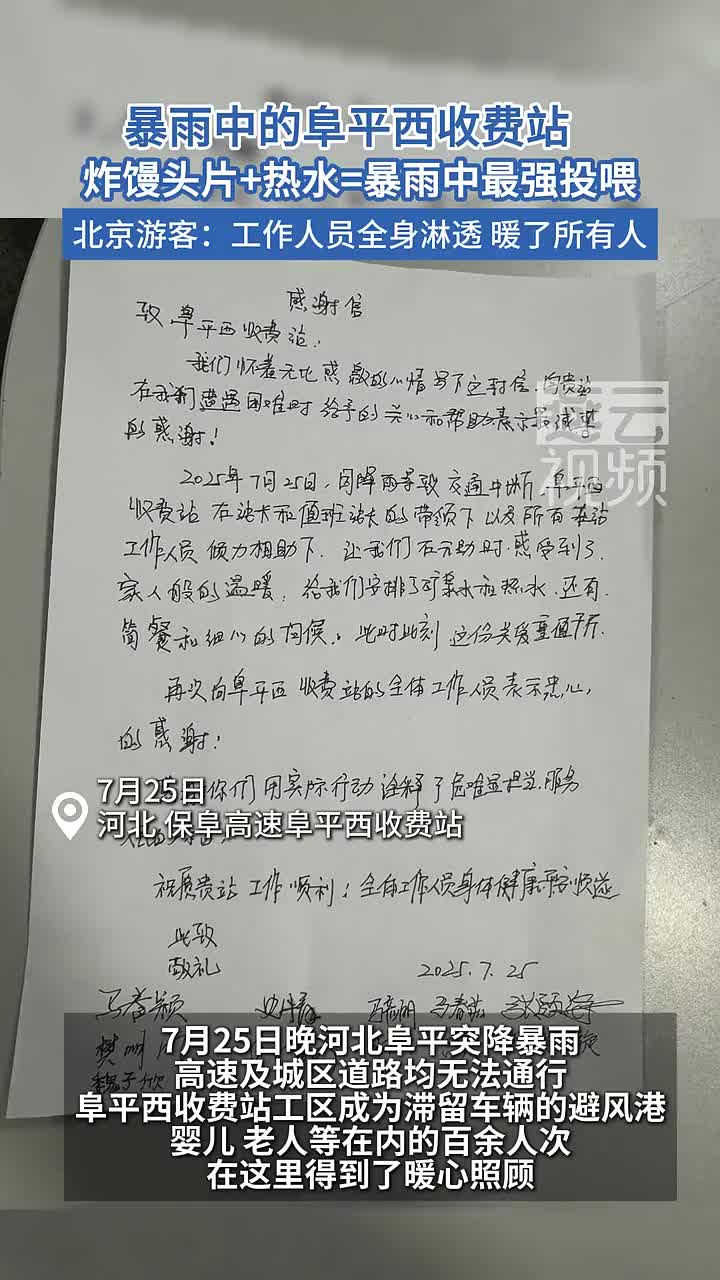 暴雨中的阜平西收费站
炸馒头片+热水=暴雨中最强投喂
北京游客：工作人员全身淋透 暖了所有人
感谢信
致阜平西收费站：
我们怀着无比感激的心情写下这封信，向贵站
在我们遭遇困难时给予的关心和帮助表示最诚挚
的感谢！
2025年7月25日，因降雨导致交通中断 阜平西
收费站在站长和值班站长的带领下以及所有本站
工作人员倾力相助下，让我们在无助时，感受到了
家人般的温暖，给我们安排了矿泉水和热水，还有
简餐和细心的问候。此时此刻这份关爱重值千斤
再次向阜平西收费站的全体工作人员表示忠心
的感谢！
你们用实际行动诠释了危难显担当，服务
祝愿贵站工作顺利！全体工作人员身体健康平安顺遂
此致
敬礼
2025.7.25
樾云
视频
7月25日
河北 保阜高速阜平西收费站
7月25日晚河北阜平突降暴雨
高速及城区道路均无法通行
阜平西收费站工区成为滞留车辆的避风港
婴儿 老人等在内的百余人次
在这里得到了暖心照顾